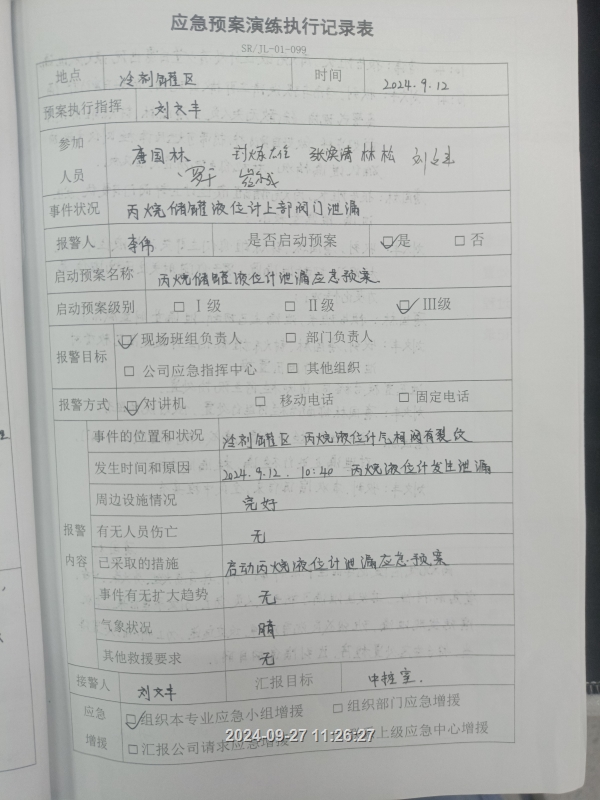 应急预案演练执行记录表
SR/JL-01-099
地点 冷剂罐区 时间 2024.9.12
预案执行指挥 刘文丰
参加人员 唐国林 张焕清 林松
罗干
事件状况 丙烷储罐液位计上部阀门泄漏
报警人 李伟 是否启动预案 ☑是 □否
启动预案名称 丙烷储罐液位计泄漏应急预案
启动预案级别 □Ⅰ级 □Ⅱ级 ☑Ⅲ级
报警目标 ☑现场班组负责人 □部门负责人
□公司应急指挥中心 □其他组织
报警方式 ☑对讲机 □移动电话 □固定电话
报警内容 事件的位置和状况 冷剂罐区 丙烷液位计气相阀有裂纹
发生时间和原因 2024.9.12. 10:40 丙烷液位计发生泄漏
周边设施情况 完好
有无人员伤亡 无
已采取的措施 启动丙烷液位计泄漏应急预案
事件有无扩大趋势 无
气象状况 晴
其他救援要求 无
接警人 刘文丰 汇报目标 中控室.
应急增援 ☑组织本专业应急小组增援 □组织部门应急增援
□汇报公司请求应急增援 上级应急中心增援
2024-09-27 11:26:27